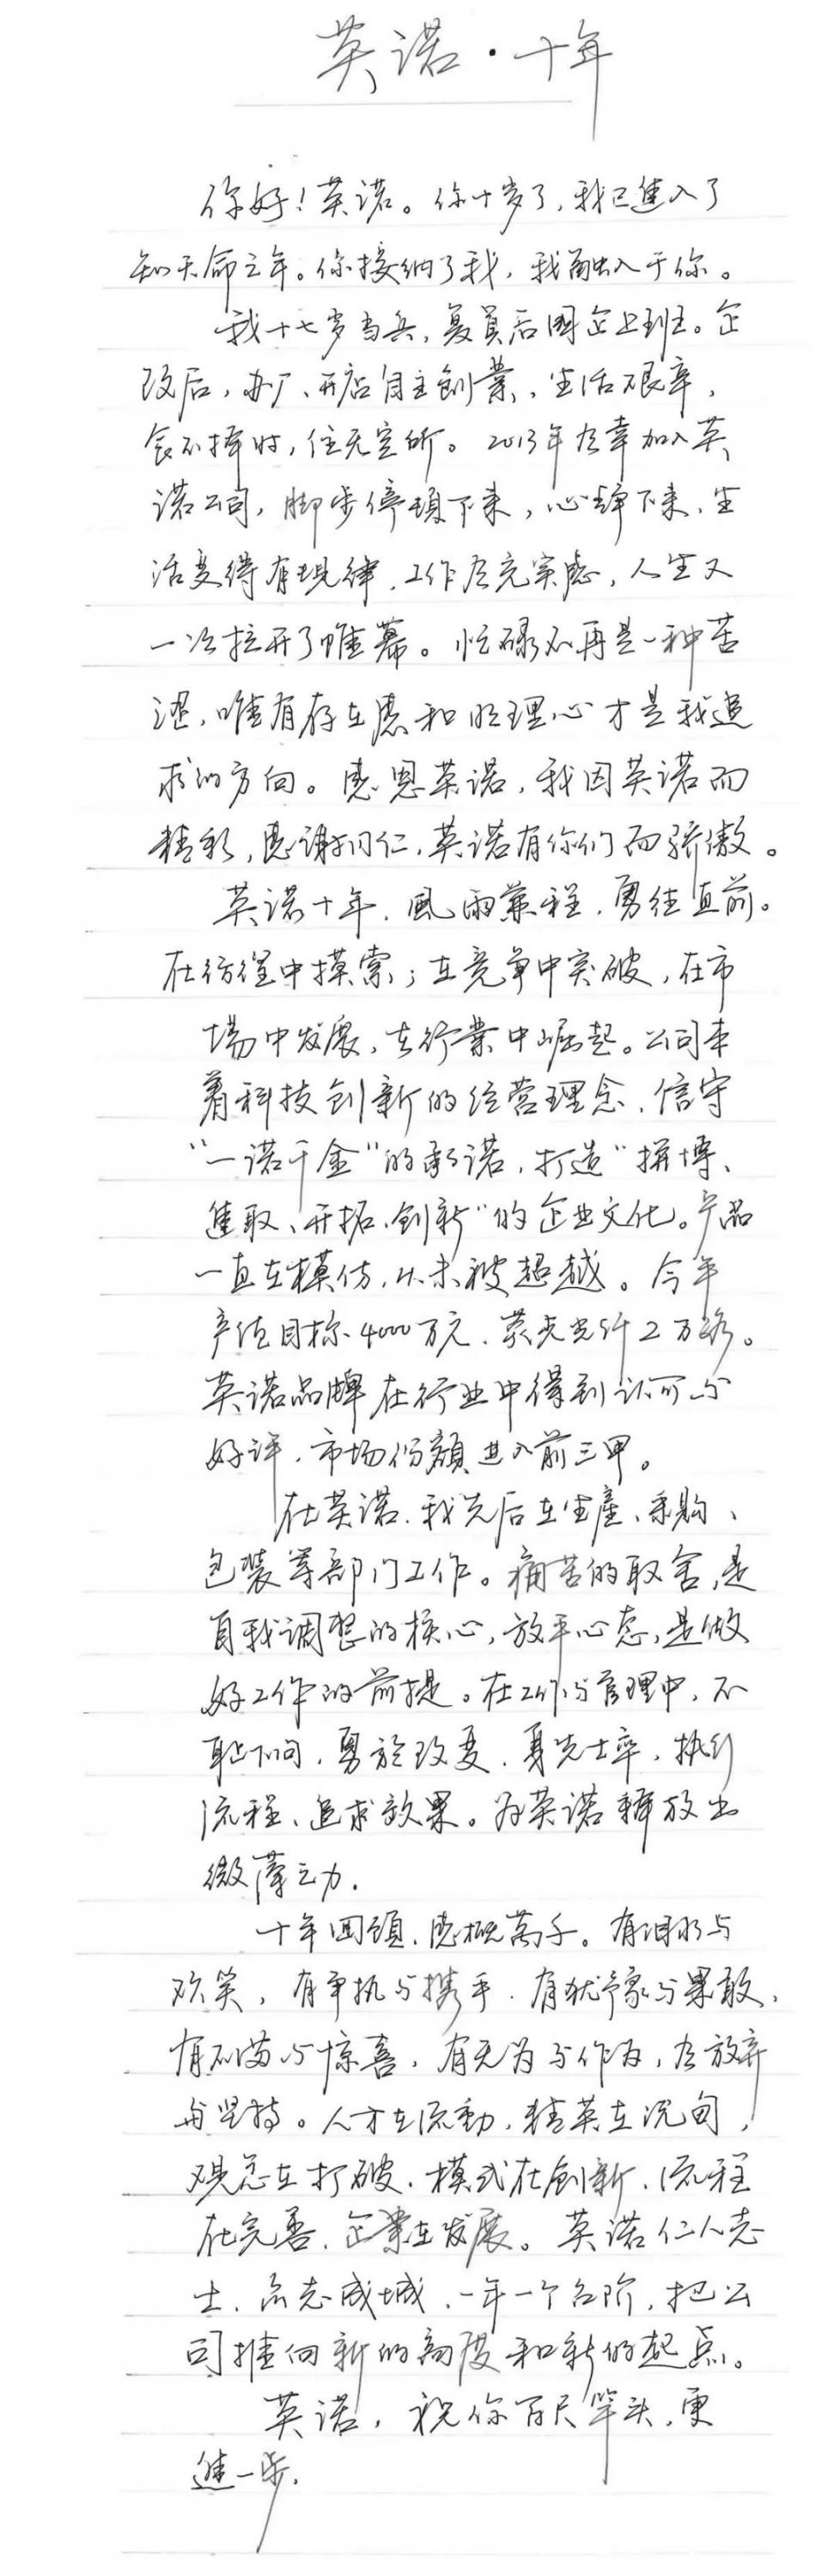 英诺·十年
你好！英诺。你十岁了，我已進入了
知天命之年。你接纳了我，我融入于你。
我十七岁当兵，复員后國企上班。企
改后，办厂、开店自主創業，生活艰辛，
食不择时，住无定所。2013年有幸加入英
诺公司，脚步停頓下来，心静下来，生
活变得有規律，工作有充实感，人生又
一次拉开了帷幕。忙碌不再是一种苦
涩，唯有存在感和明理心才是我追
求的方向。感恩英诺，我因英诺而
精彩，感谢同仁，英诺有你们而骄傲。
英诺十年，風雨兼程，勇往直前。
在彷徨中摸索；在竞争中突破，在市
場中发展，在行業中崛起。公司本
着科技创新的经营理念，信守
“一诺千金”的承诺，打造“拼博、
進取、开拓、创新”的企业文化。产品
一直在模仿，从未被超越。今年
产值目标4000万元，荧光光纤2万路。
英诺品牌在行业中得到认可与
好评，市场份額进入前三甲。
在英诺，我先后在生產、采购、
包装等部门工作。痛苦的取舍，是
自我调整的核心，放平心态，是做
好工作的前提。在工作与管理中，不
耻下问，勇於改变，身先士卒，执行
流程、追求效果。为英诺释放出
微薄之力.
十年回頭，感概萬千。有泪水与
欢笑，有争执与携手，有犹豫与果敢，
有不满与惊喜，有无为与作为，有放弃
与坚持。人才在流動，精英在沉甸，
观念在打破，模式在創新，流程
在完善，企業在发展。英诺仁人志
士，众志成城，一年一个台阶，把公
司推向新的高度和新的起点。
英诺，祝你百尺竿头，更
進一步.